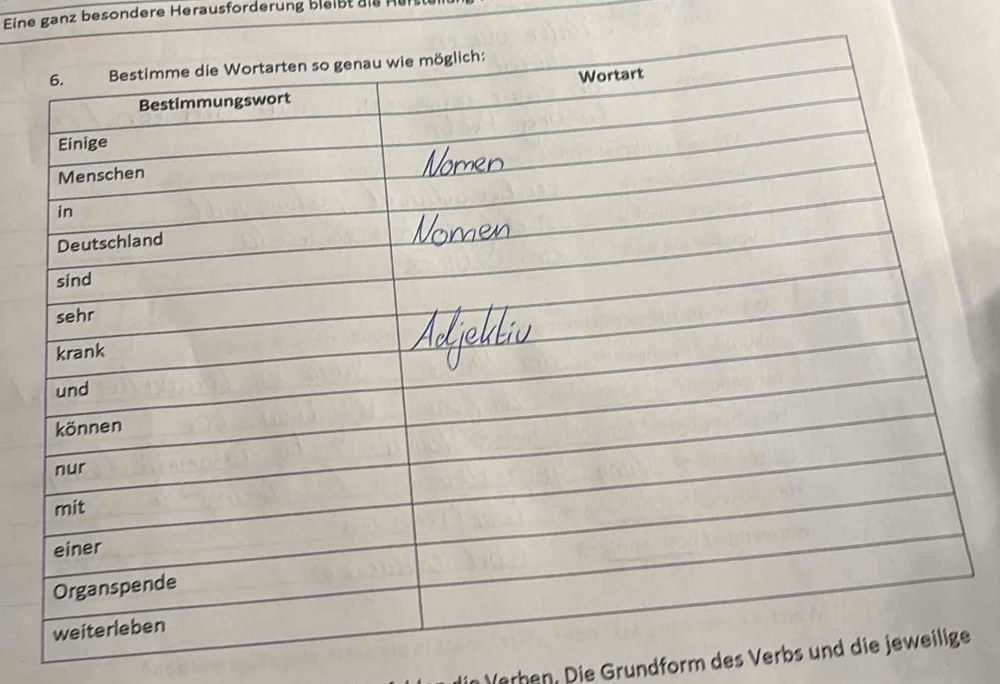 Eine ganz besondere Herausforderung bleibt die
6. Bestimme die Wortarten so genau wie möglich:
Bestimmungswort Wortart
Einige
Menschen Nomen
in
Deutschland Nomen
sind
sehr
krank Adjektiv
und
können
nur
mit
einer
Organspende
weiterleben
die Verben. Die Grundform des Verbs und die jeweilige